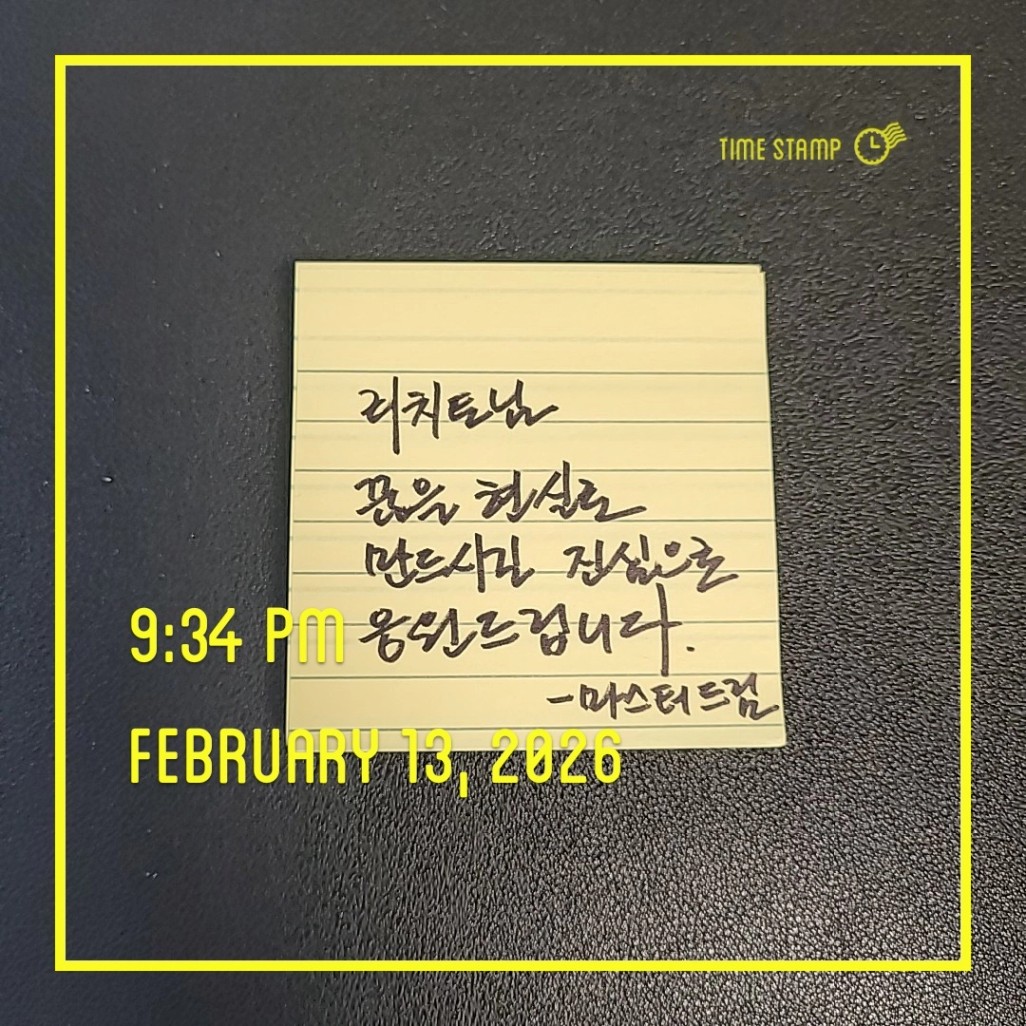 TIME STAMP
리치토님
꿈을 현실로
만드시길 진심으로
응원드립니다.
-마스터드림
9:34 PM
FEBRUARY 13, 2026